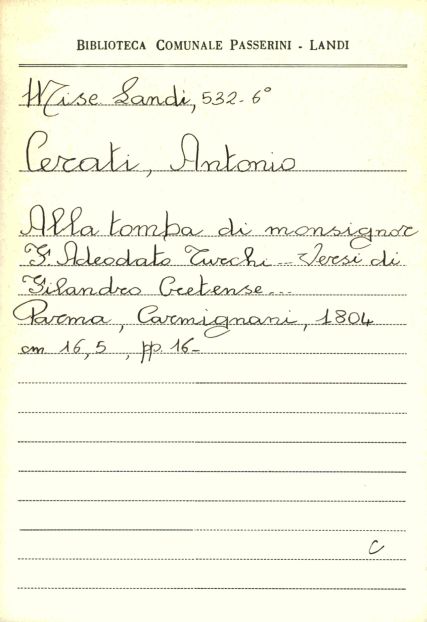 BIBLIOTECA COMUNALE PASSERINI - LANDI
Misc. Landi, 532-6°
Cerati, Antonio
Alla tomba di monsignor
F. Adeodato Turchi ... Versi di
Filandro Cretense...
Parma, Carmignani, 1804
cm 16,5 , pp. 16-
C